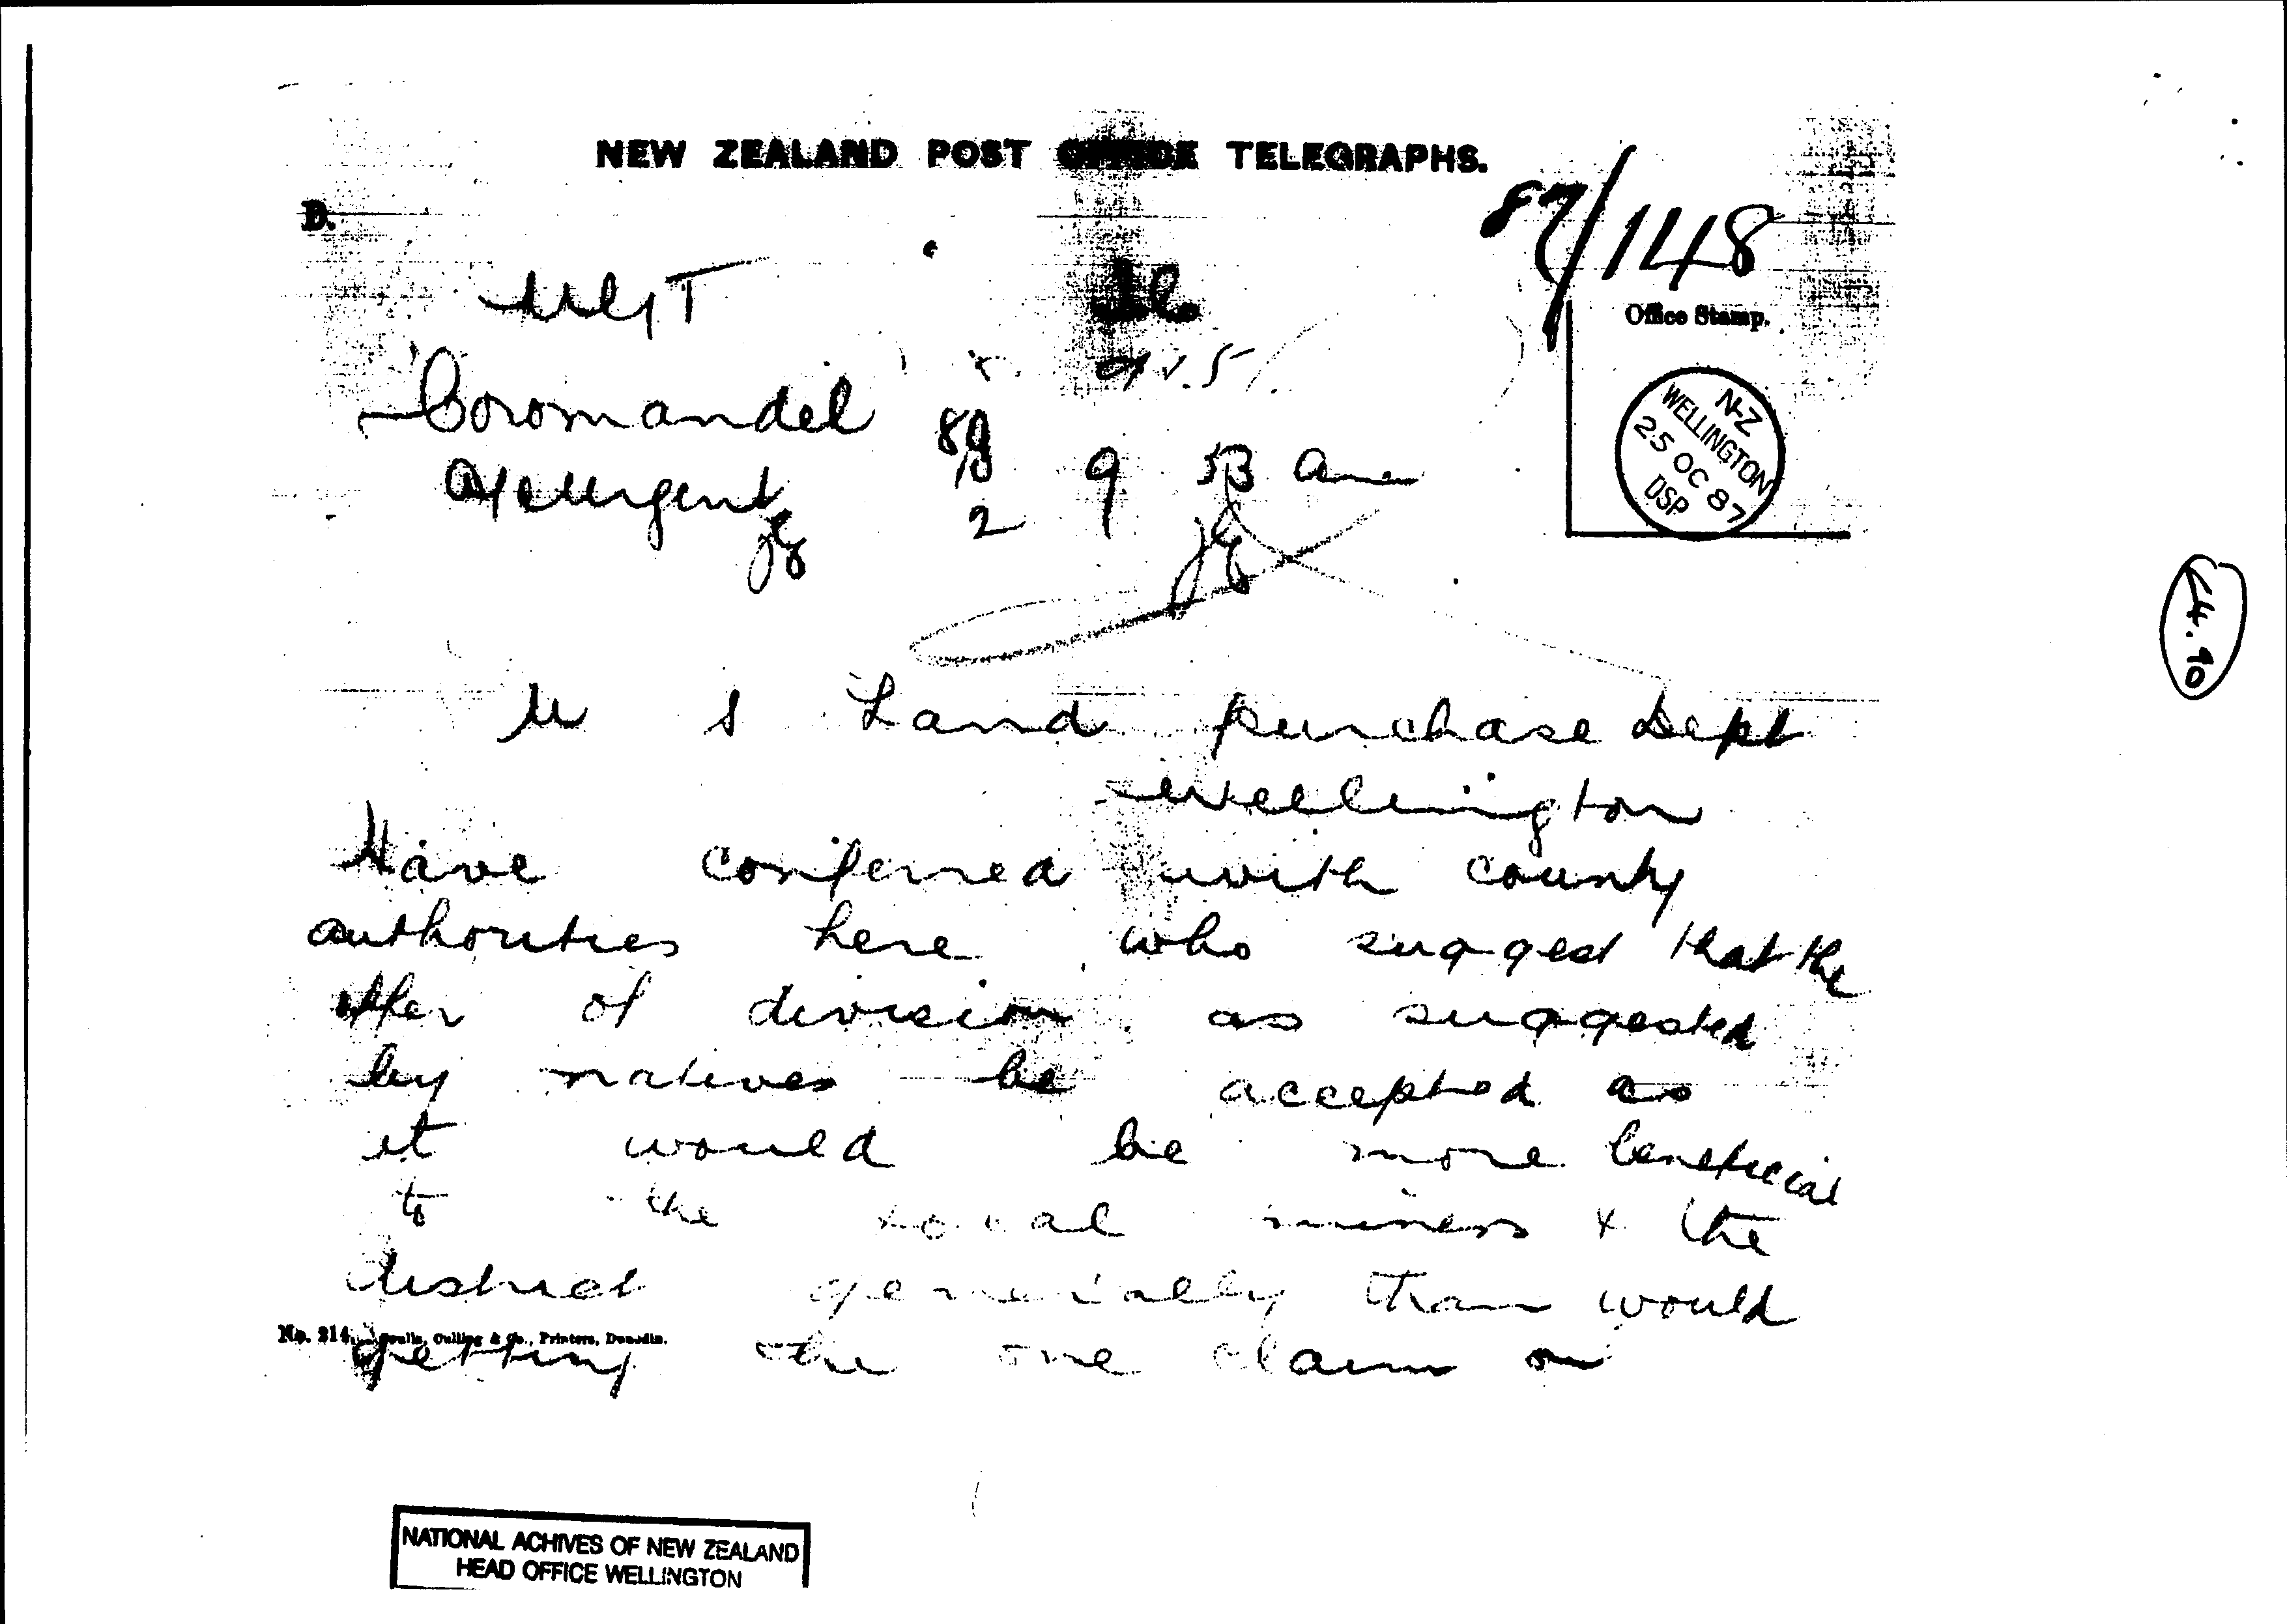 NEW ZEALAND POST OFFICE TELEGRAPHS.
D.
87/148
Office Stamp.
N-Z
WELLINGTON
25 OC 87
DSP
Coromandel 89
Urgent 2 9 53 am
14.90
U S Land purchase Dept
Wellington
Have conferred with county
authorities here who suggest that the
offer of division as suggested
by natives be accepted as
it would be more beneficial
to the local miners & the
district generally than would
No. 214. Culling & Co., Printers, Dunedin.
getting the one claim on
NATIONAL ACHIVES OF NEW ZEALAND
HEAD OFFICE WELLINGTON